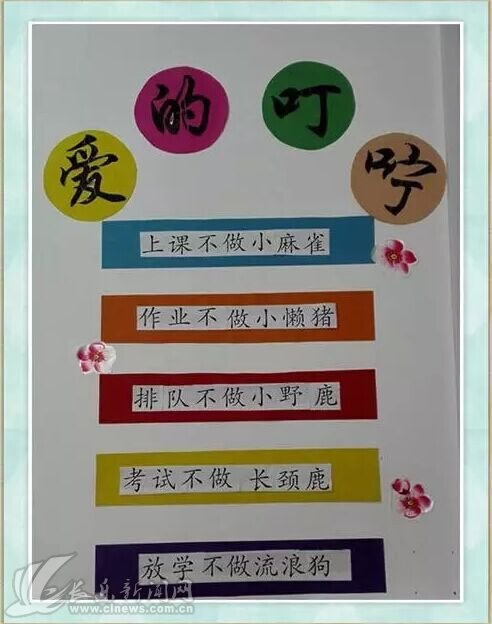 爱的叮咛
上课不做小麻雀
作业不做小懒猪
排队不做小野鹿
考试不做长颈鹿
放学不做流浪狗
长乐新闻网
www.clnews.com.cn